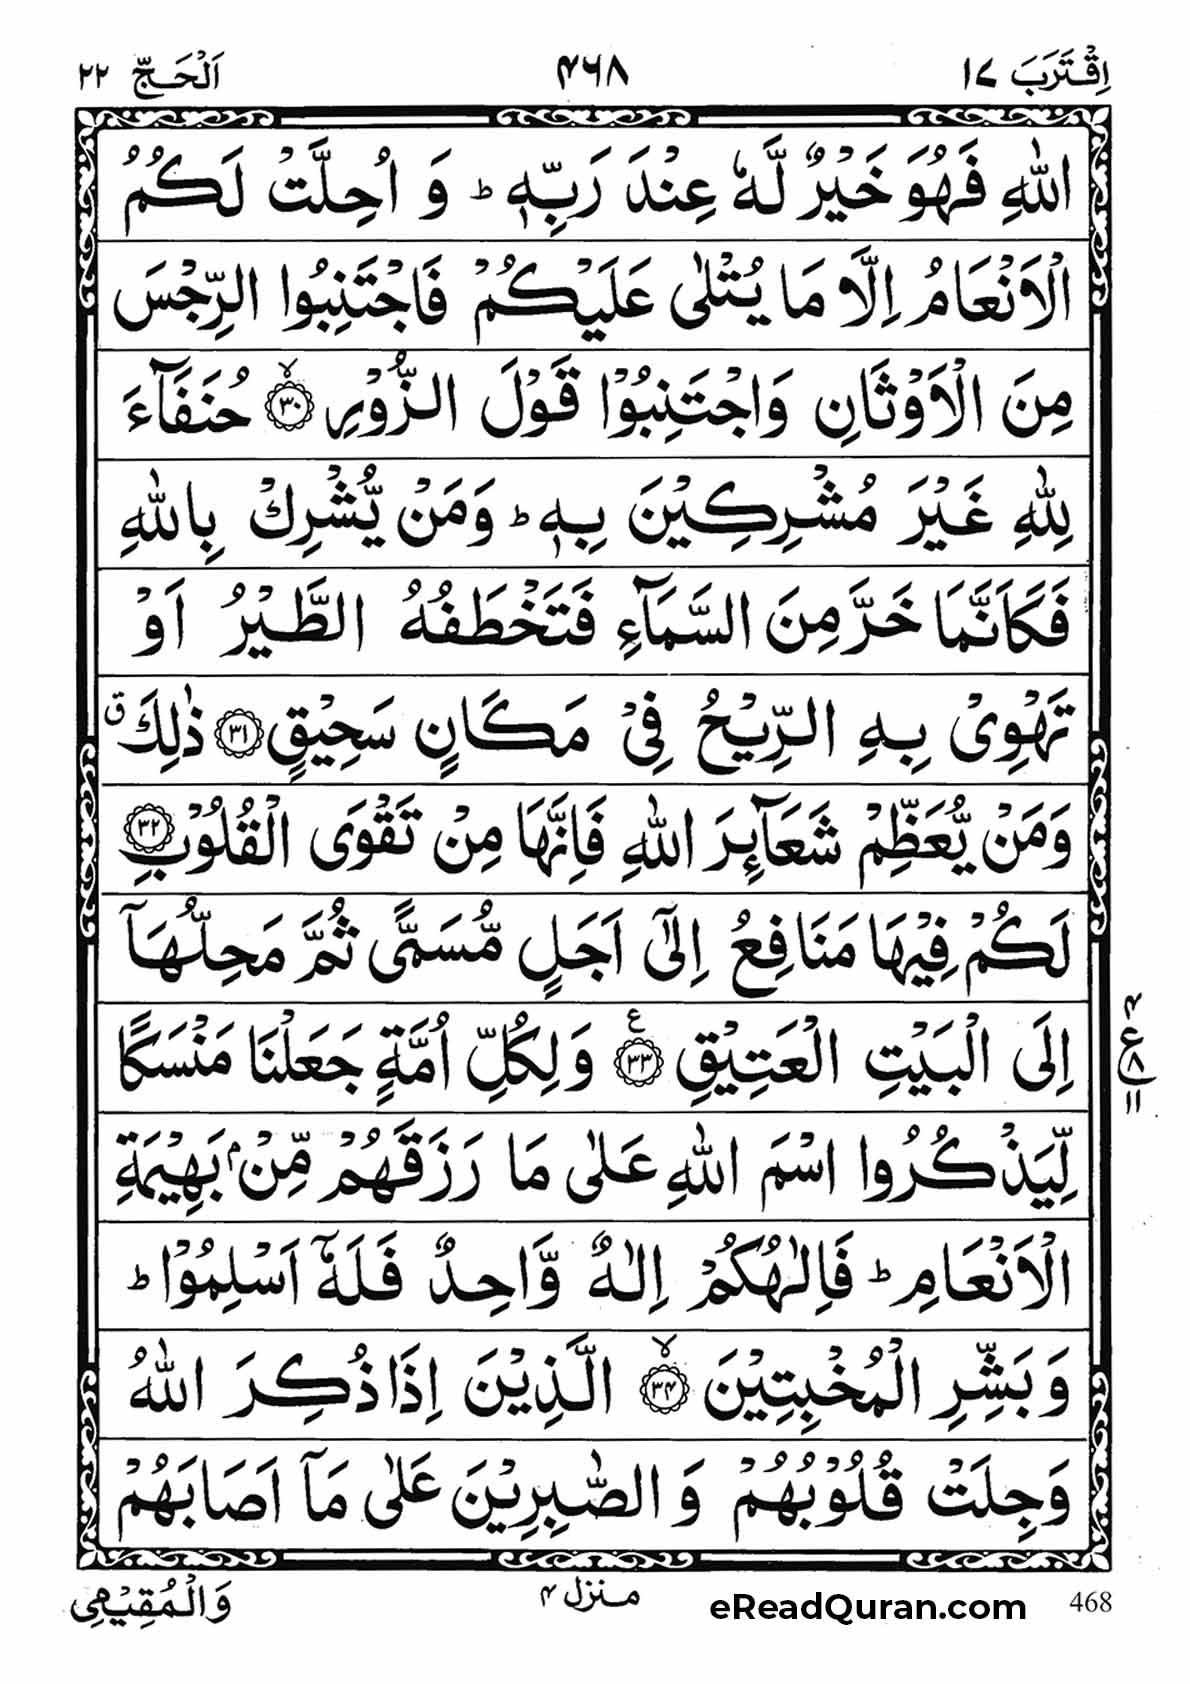 اِقْتَرَبَ ١٧ ۴۶۸ اَلْحَجّ ٢٢
اللّٰهِ فَهُوَ خَيْرٌ لَّهٗ عِنْدَ رَبِّهٖ ؕ وَ اُحِلَّتْ لَكُمُ
الْاَنْعَامُ اِلَّا مَا يُتْلٰى عَلَيْكُمْ فَاجْتَنِبُوا الرِّجْسَ
مِنَ الْاَوْثَانِ وَاجْتَنِبُوْا قَوْلَ الزُّوْرِ ۙ‏﴿۳۰﴾ حُنَفَآءَ
لِلّٰهِ غَيْرَ مُشْرِكِيْنَ بِهٖ ؕ وَمَنْ يُّشْرِكْ بِاللّٰهِ
فَكَاَنَّمَا خَرَّ مِنَ السَّمَآءِ فَتَخْطَفُهُ الطَّيْرُ اَوْ
تَهْوِىْ بِهِ الرِّيْحُ فِىْ مَكَانٍ سَحِيْقٍ ﴿۳۱﴾ ذٰلِكَ ق
وَمَنْ يُّعَظِّمْ شَعَآئِرَ اللّٰهِ فَاِنَّهَا مِنْ تَقْوَى الْقُلُوْبِ ﴿۳۲﴾
لَكُمْ فِيْهَا مَنَافِعُ اِلٰٓى اَجَلٍ مُّسَمًّى ثُمَّ مَحِلُّهَاۤ
اِلَى الْبَيْتِ الْعَتِيْقِ ﴿۳۳﴾ ع وَلِكُلِّ اُمَّةٍ جَعَلْنَا مَنْسَكًا
لِّيَذْكُرُوا اسْمَ اللّٰهِ عَلٰى مَا رَزَقَهُمْ مِّنْۢ بَهِيْمَةِ
الْاَنْعَامِ ؕ فَاِلٰهُكُمْ اِلٰهٌ وَّاحِدٌ فَلَهٗۤ اَسْلِمُوْا ؕ
وَبَشِّرِ الْمُخْبِتِيْنَ ۙ‏﴿۳۴﴾ الَّذِيْنَ اِذَا ذُكِرَ اللّٰهُ
وَجِلَتْ قُلُوْبُهُمْ وَالصّٰبِرِيْنَ عَلٰى مَاۤ اَصَابَهُمْ
۴
ع ۸
۱۱
468 eReadQuran.com منزل ۴ وَالْمُقِيْمِى